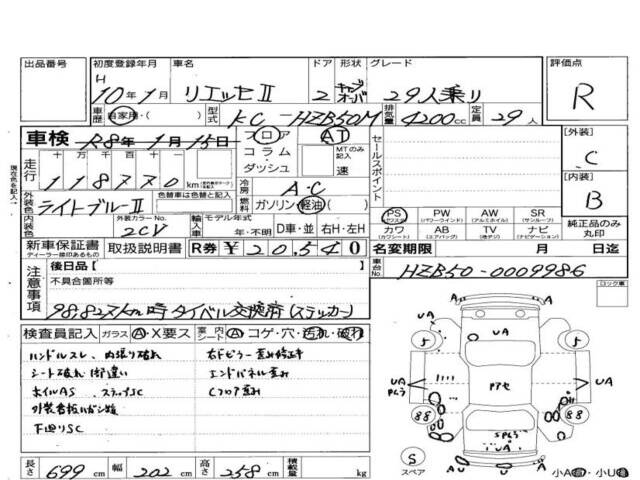 出品番号 初度登録年月 車名 ドア 形状 グレード 評価点
H 10年1月 リエッセII 2 キャブオーバ 29人乗り R
車歴 自家用・( ) 型式 KC-HZB50M 排気量 4200cc 定員 29人
車検 R8年1月15日 フロア AT セールスポイント [外装]
現在色を記入→ 走行 十 万 千 百 十 一 コラム・ダッシュ MTのみ記入 速 C
118770 km 冷房 A.C [内装]
外装色 ライトブルーII 色替車は色替と記入 燃料 ガソリン 軽油 ( ) B
内装色 外装カラーNo. 2CV 輸入車 モデル年式 年・不明 D車・並 右H・左H PS(パワステ) PW(パワーウインド) AW(アルミホイル) SR(サンルーフ) 純正品のみ丸印
カワ(カワシート) AB(エアバッグ) TV(地デジ) ナビ(ナビゲーション)
新車保証書 ディーラー印のあるもの 取扱説明書 R券 ¥20,540 名変期限 月 日迄
注意事項 後日品[ ] 車台No. HZB50-0009986
不具合箇所等 ロック車
98.827km時タイベル交換済(ステッカー)
検査員記入 ガラス A・X要ス 室内シート A コゲ・穴・汚れ・破れ
ハンドルスレ、内張り破れ
シート破れ
ホイルAS ステップSC
下廻りSC
エンドパネル歪み
Cフロア歪み
UA
5 5
UA アセ UA
88 88
S スペア
A U U A
長さ 699cm 幅 202cm 高さ 258cm 積載量 kg 小A・小U